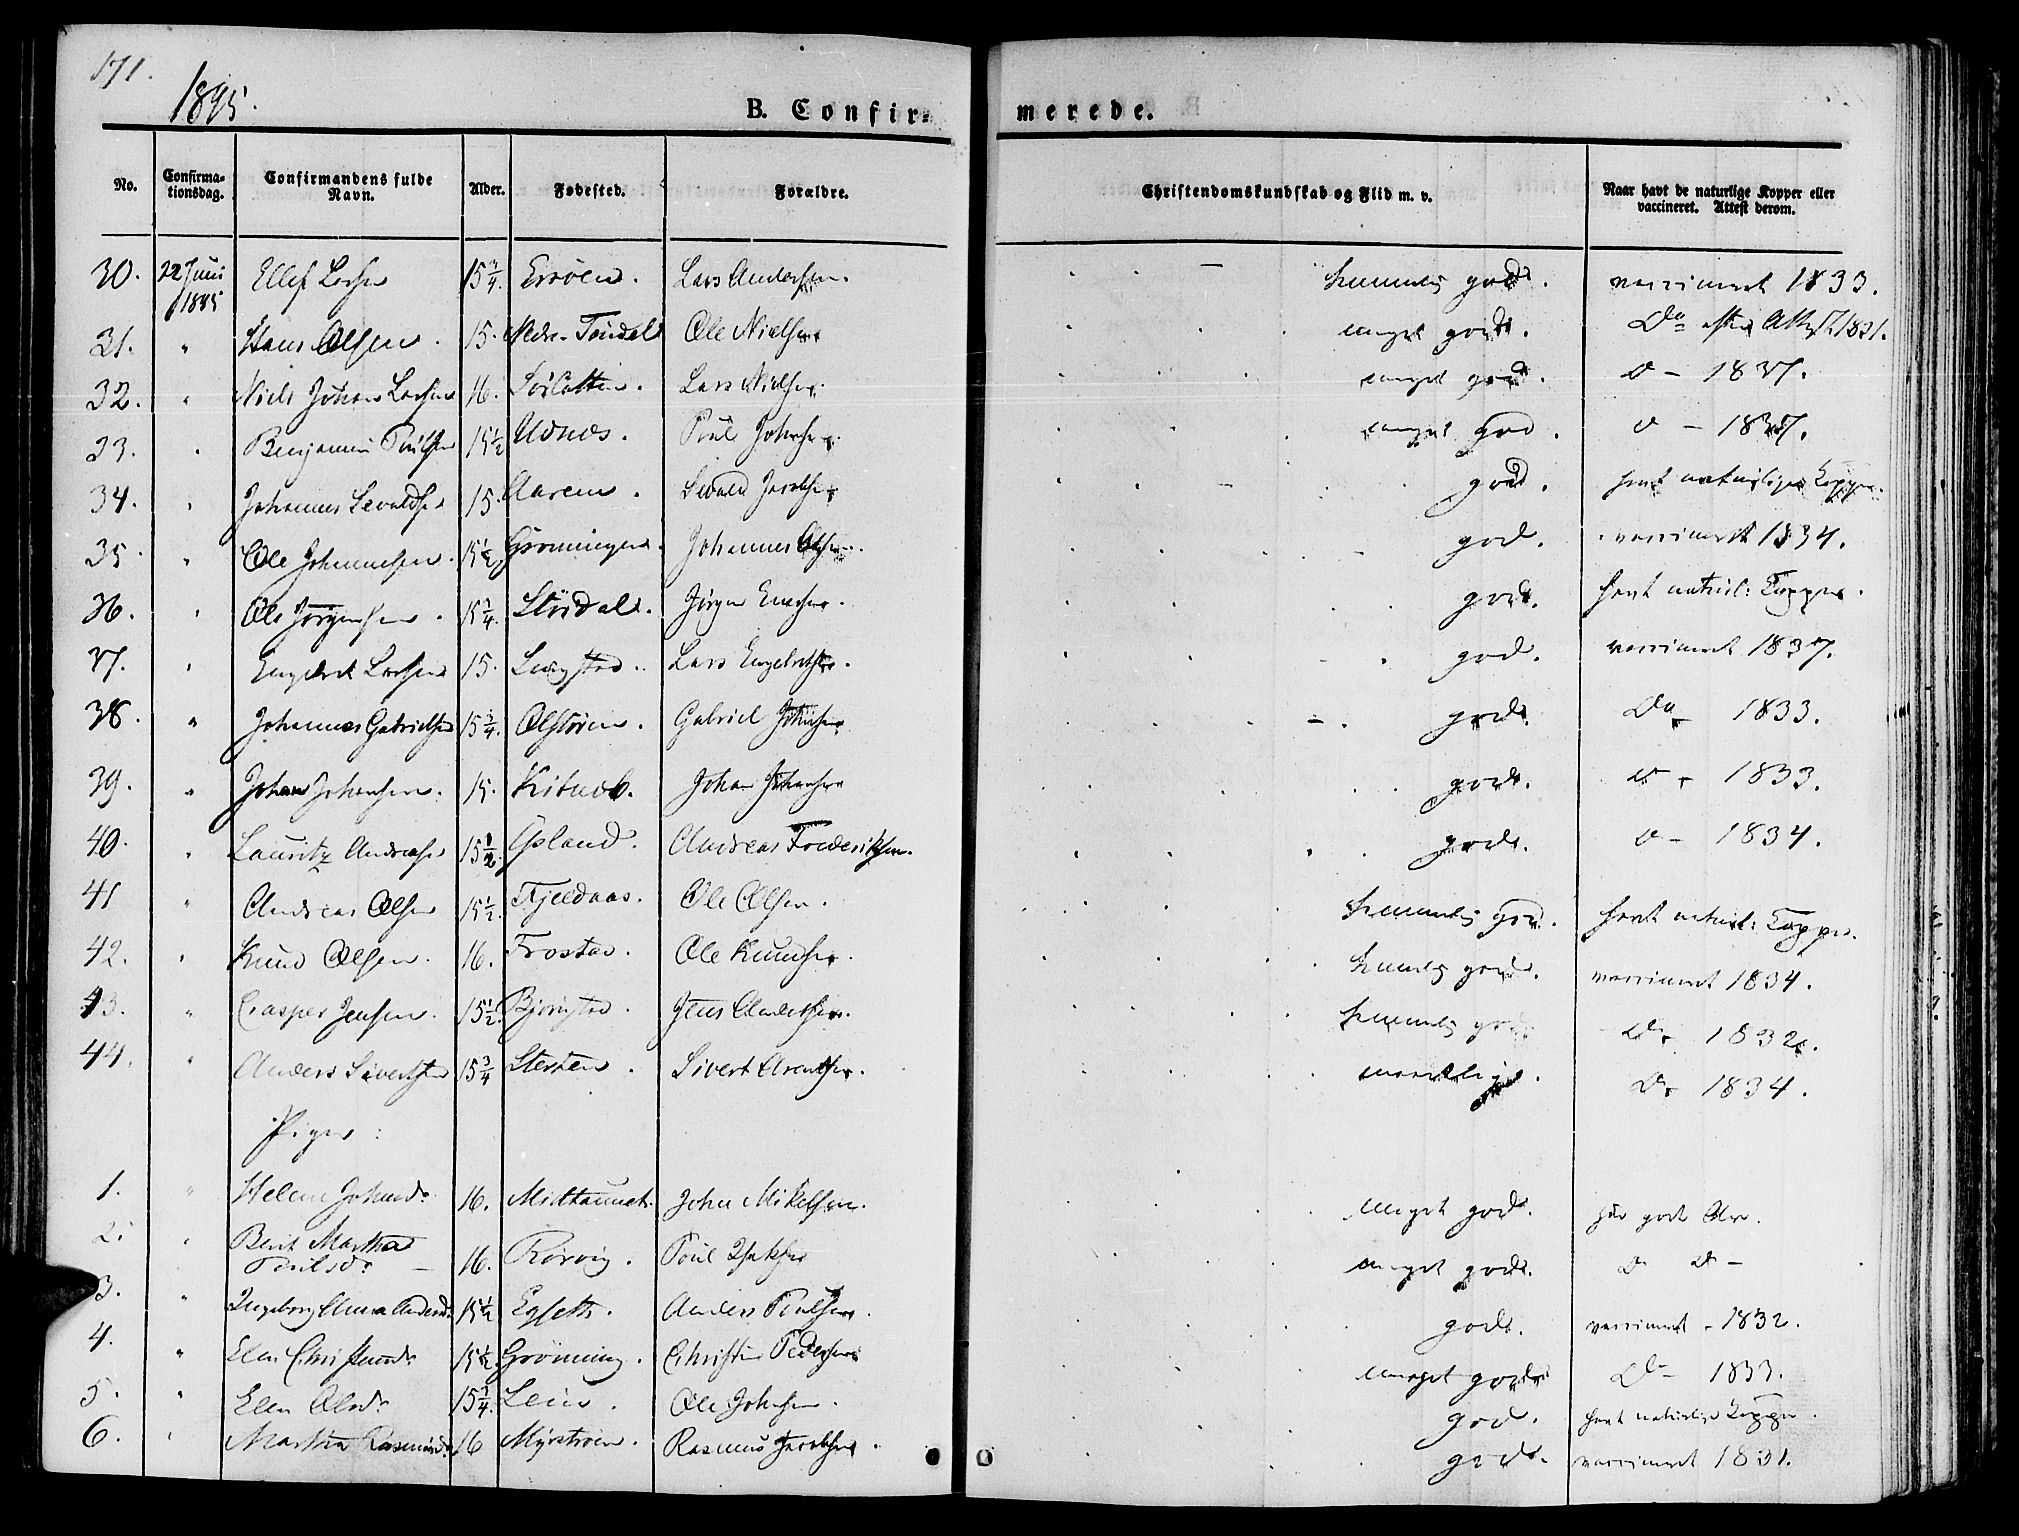 171.
1845.
B. Confir-
merede.
No.
Confirma-
tionsdag.
Confirmandens fulde
Navn.
Alder.
Fødested.
Forældre.
Christendomskundskab og Flid m. v.
Naar havt de naturlige Kopper eller
vaccineret. Attest derom.
30. 22 Juni 1845 Ellef Larsen 15 3/4. Lars Andersen. temmelig god. vaccineret 1833.
31. " Hans Olsen. 15. Nedre- Ole Nielsen meget god. Do 1831.
32. " Niels Johan Larsen 16. Lars Nielsen. meget god. D - 1837.
33. " Benjamin Poulsen 15 1/2 Udnæs. Poul Johnsen. meget god. D - 1837.
34. " Johannes Sivaldsen 15. Aarem. Sivald Jacobsen god. havt naturlige Kopper.
35. " Ole Johannesen. 15 1/2. Grønningen. Johannes Olsen. god. vaccineret 1834.
36. " Ole Jørgensen. 15 1/4. Stordal. Jørgen god. havt naturl: Kopper.
37. " Engebret Larsen 15. Lars Engebretsen. god. vaccineret 1837.
38. " Johannes Gabrielsen 15 3/4. Gabriel Johnsen god. Do - 1833.
39. " Johan Johansen. 15. Johan Johansen god. D - 1833.
40. " Lauritz Andreasen 15 1/2. Opland. Andreas Frederiksen. god. D - 1834.
41 " Andreas Olsen 15 1/2. Fjeldaas. Ole Olsen. temmelig god. havt naturl: Kopper.
42. " Knud Olsen. 16. Frostad. Ole Knudsen. temmelig god. vaccineret 1834.
43. " Casper Jensen. 15 1/2. Jens Andersen. temmelig god. Do 1832.
44. " Anders Sivertsen 15 3/4 Stersten. Sivert Arentsen. maadelig. Do 1834.
Piger:
1. " Helene Johnsd. 16. John Mikelsen. meget god.
2. " Berit Martha
Poulsd. 16. Rørvig. Poul meget god. D D -
3. " Ingeborg Anna Andersd. 15 1/2 Egsett. Anders Poulsen. god. vaccineret - 1832.
4. " Elen Christensd. 15 1/2. Grønning. Christen Pedersen meget god. Do - 1833.
5. " Elen Olsd. 15 1/4. Lein. Ole Johnsen. god. havt naturlige Kopper.
6. " Martha Rasmusd. 16 Myrstrøen. Rasmus Jacobsen. god. vaccineret 1831.